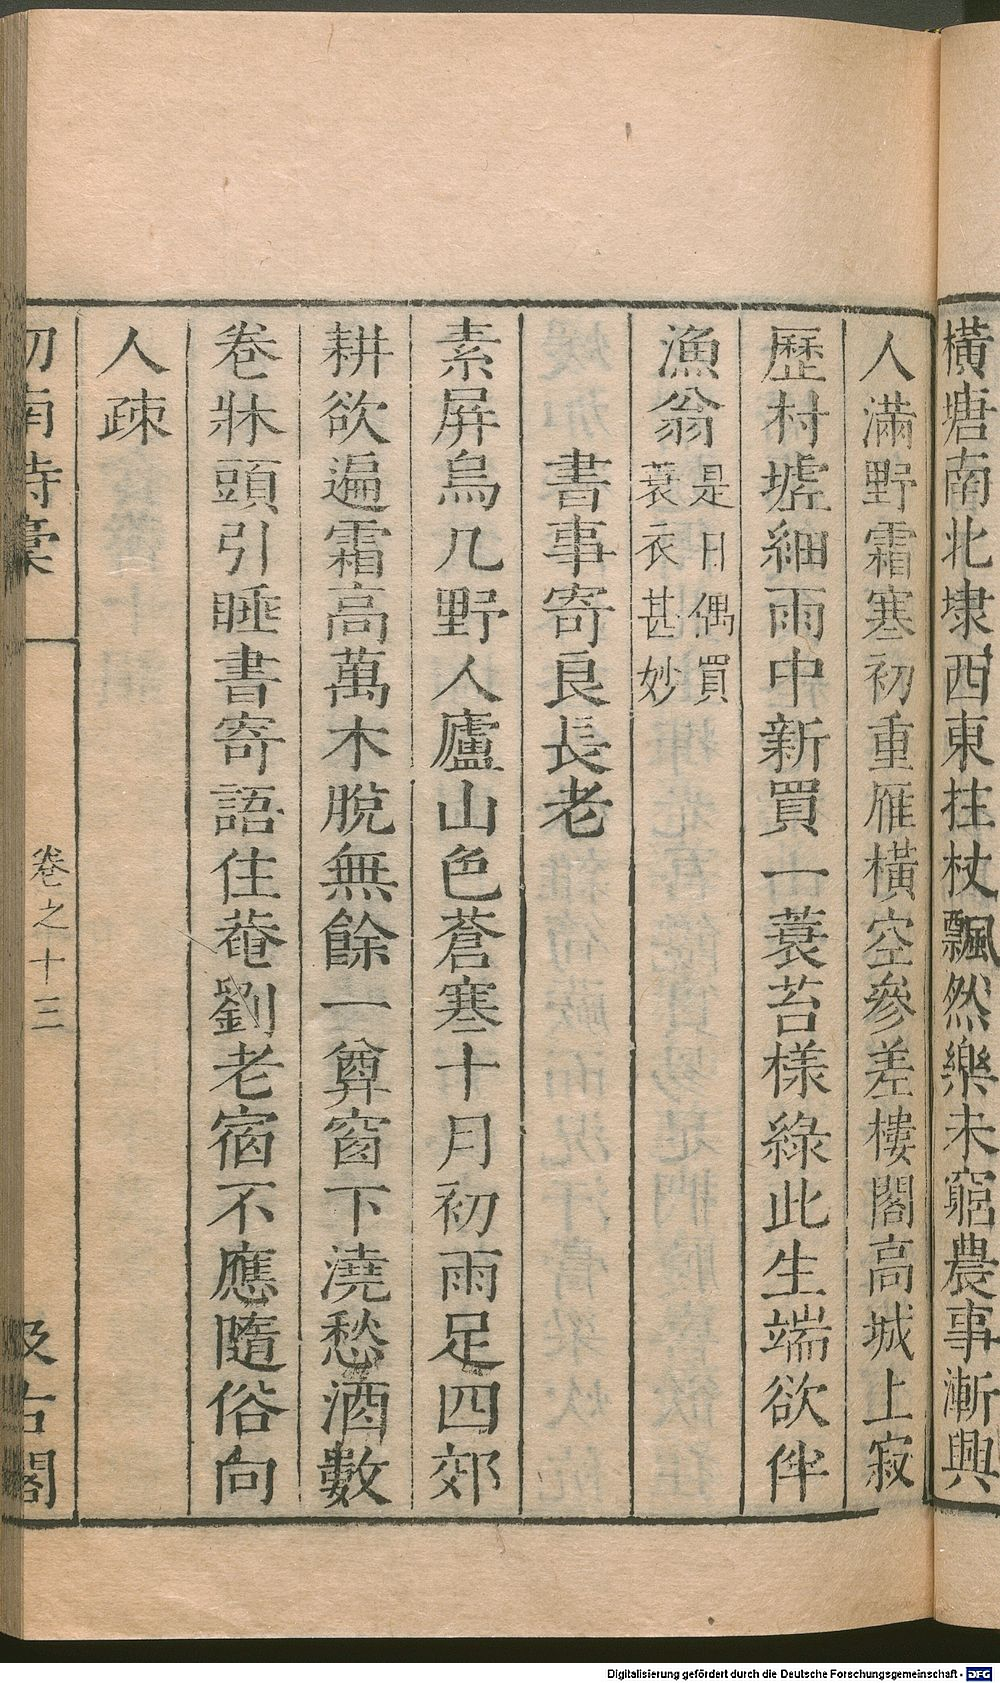 橫塘南北埭西東拄杖飄然樂未窮農事漸興
人滿野霜寒初重雁橫空參差樓閣高城上寂
歷村墟細雨中新買一蓑苔樣綠此生端欲伴
漁翁是日偶買
蓑衣甚妙
書事寄良長老
素屏烏几野人廬山色蒼寒十月初雨足四郊
耕欲遍霜高萬木脫無餘一尊窗下澆愁酒數
卷牀頭引睡書寄語住菴劉老宿不應隨俗向
人疎
劒南詩稾
卷之十三
汲古閣
Digitalisierung gefördert durch die Deutsche Forschungsgemeinschaft - DFG